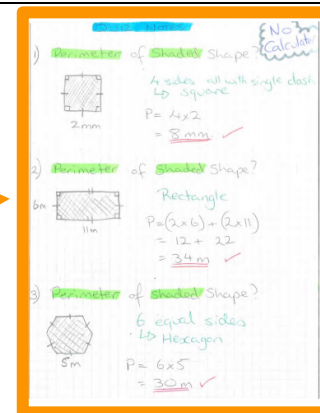 Quiz Notes
No
Calculator
1) Perimeter of Shaded Shape?
4 sides all with single dash
↳ square
2mm
P = 4x2
= 8mm ✓
2) Perimeter of Shaded Shape?
Rectangle
6m
11m
P=(2x6) + (2x11)
= 12 + 22
= 34m ✓
3) Perimeter of Shaded Shape?
6 equal sides
↳ Hexagon
5m
P = 6x5
= 30m ✓